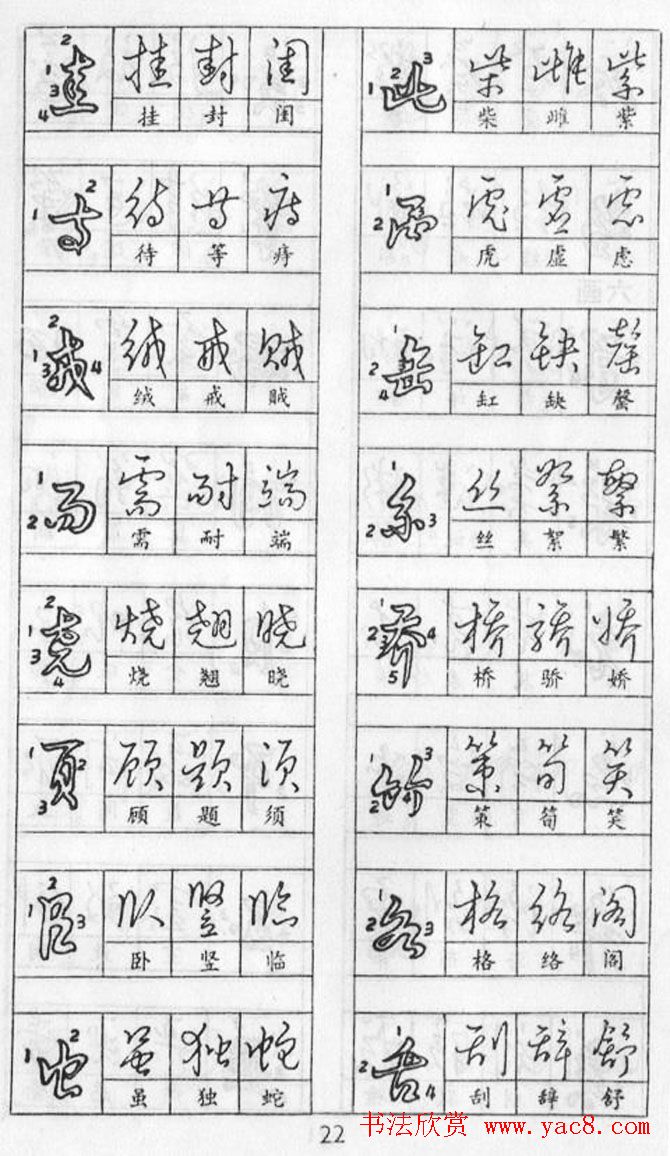 圭 挂 封 闺
挂 封 闺
寺 待 等 痔
待 等 痔
绒 戒 贼
绒 戒 贼
而 需 耐 端
需 耐 端
尧 烧 翘 晓
烧 翘 晓
页 顾 题 须
顾 题 须
卧 竖 临
卧 竖 临
虫 虽 独 蛇
虽 独 蛇
此 柴 雌 紫
柴 雌 紫
虎 虚 虑
虎 虚 虑
缶 缸 缺 罄
缸 缺 罄
糸 丝 絮 繁
丝 絮 繁
乔 桥 骄 娇
桥 骄 娇
策 筍 笑
策 筍 笑
各 格 络 阁
格 络 阁
舌 刮 辞 舒
刮 辞 舒
22
书法欣赏 www.yac8.com